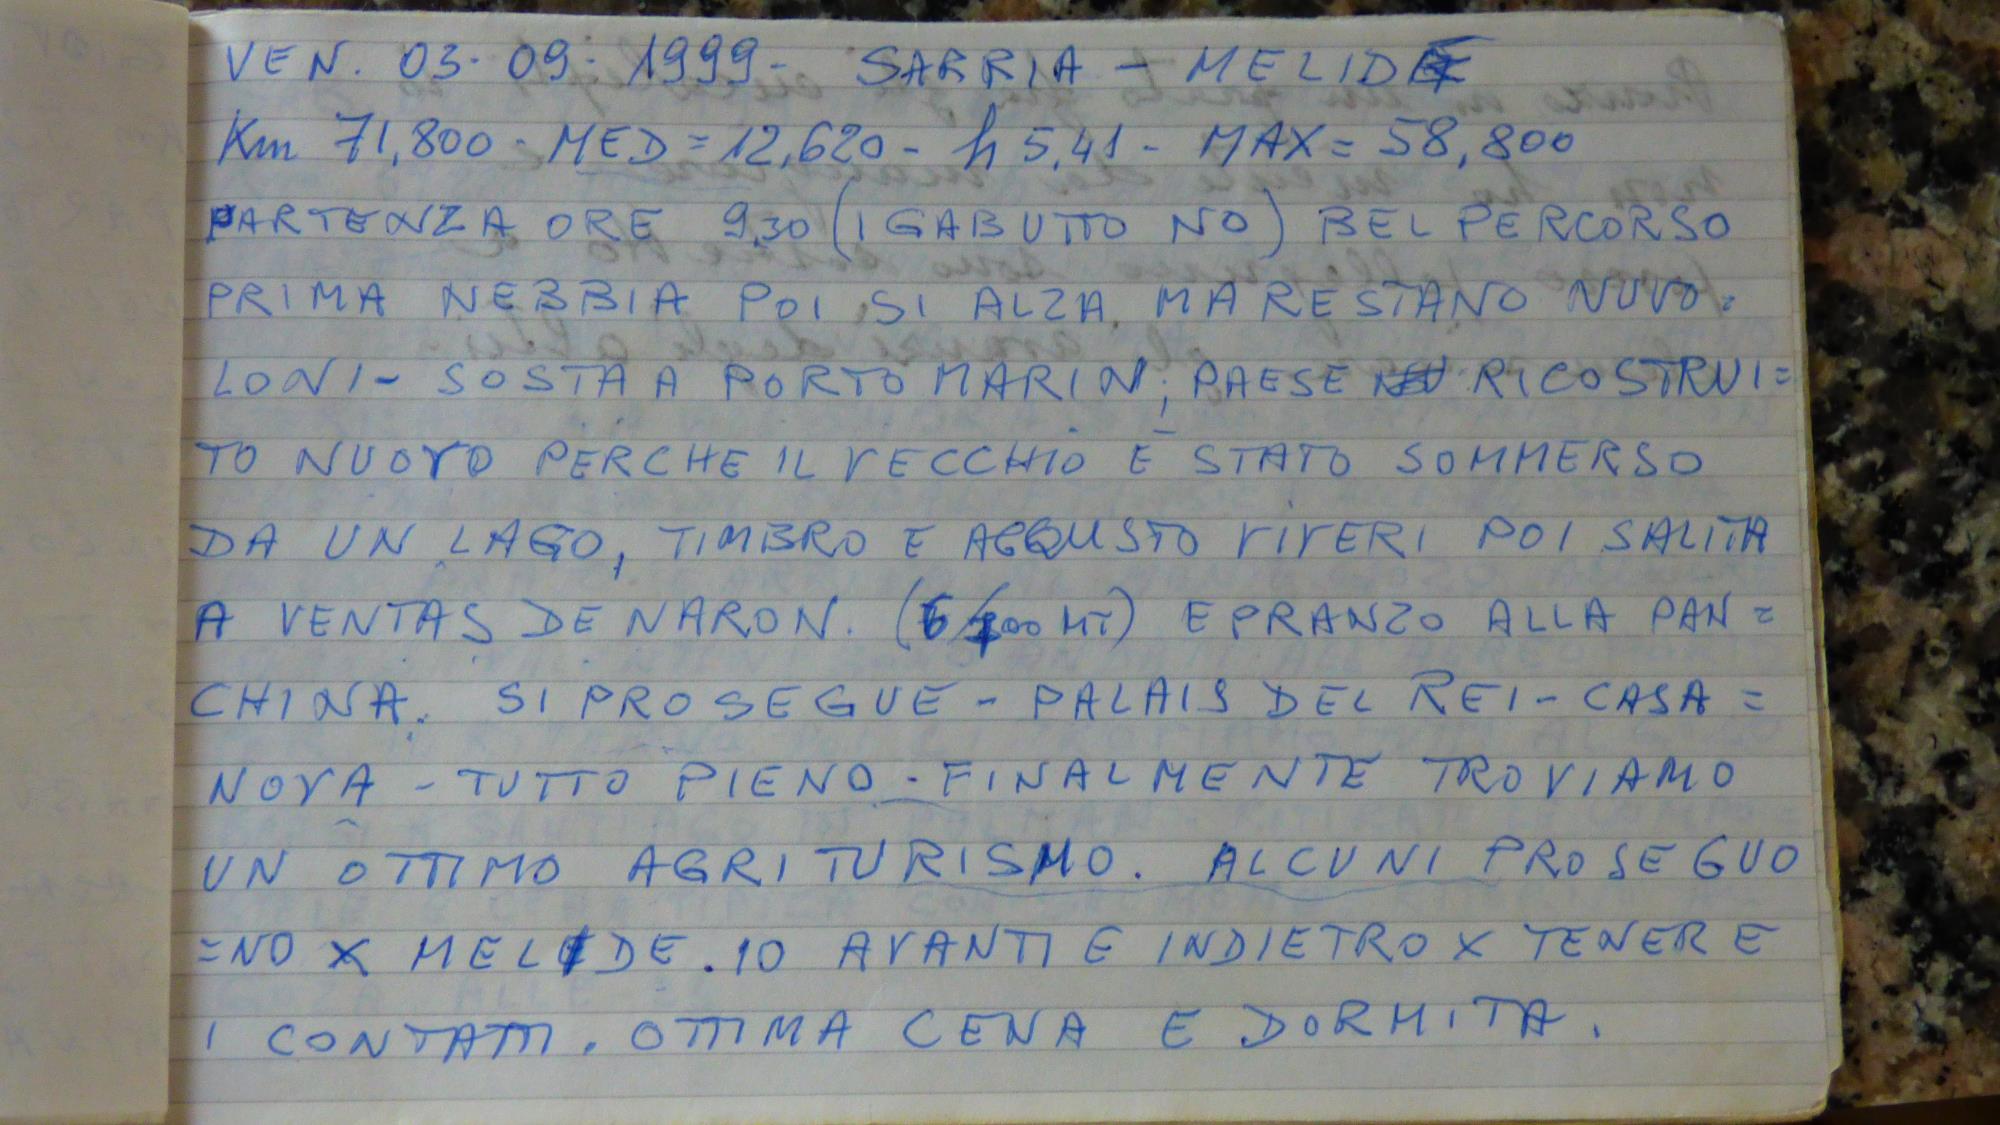 VEN. 03-09-1999- SARRIA - MELIDE
Km 71,800 - MED = 12,620 - h 5,41 - MAX = 58,800
PARTENZA ORE 9,30 (I GABUTTO NO) BEL PERCORSO
PRIMA NEBBIA POI SI ALZA MA RESTANO NUVO=
LONI - SOSTA A PORTOMARIN; PAESE RICOSTRUI=
TO NUOVO PERCHE IL VECCHIO E STATO SOMMERSO
DA UN LAGO, TIMBRO E ACQUSTO VIVERI POI SALITA
A VENTAS DE NARON. (6/700 MT) E PRANZO ALLA PAN=
CHINA. SI PROSEGUE - PALAIS DEL REI - CASA=
NOVA - TUTTO PIENO - FINALMENTE TROVIAMO
UN OTTIMO AGRITURISMO. ALCUNI PROSEGUO
=NO X MELIDE. IO AVANTI E INDIETRO X TENERE
I CONTATTI. OTTIMA CENA E DORMITA.